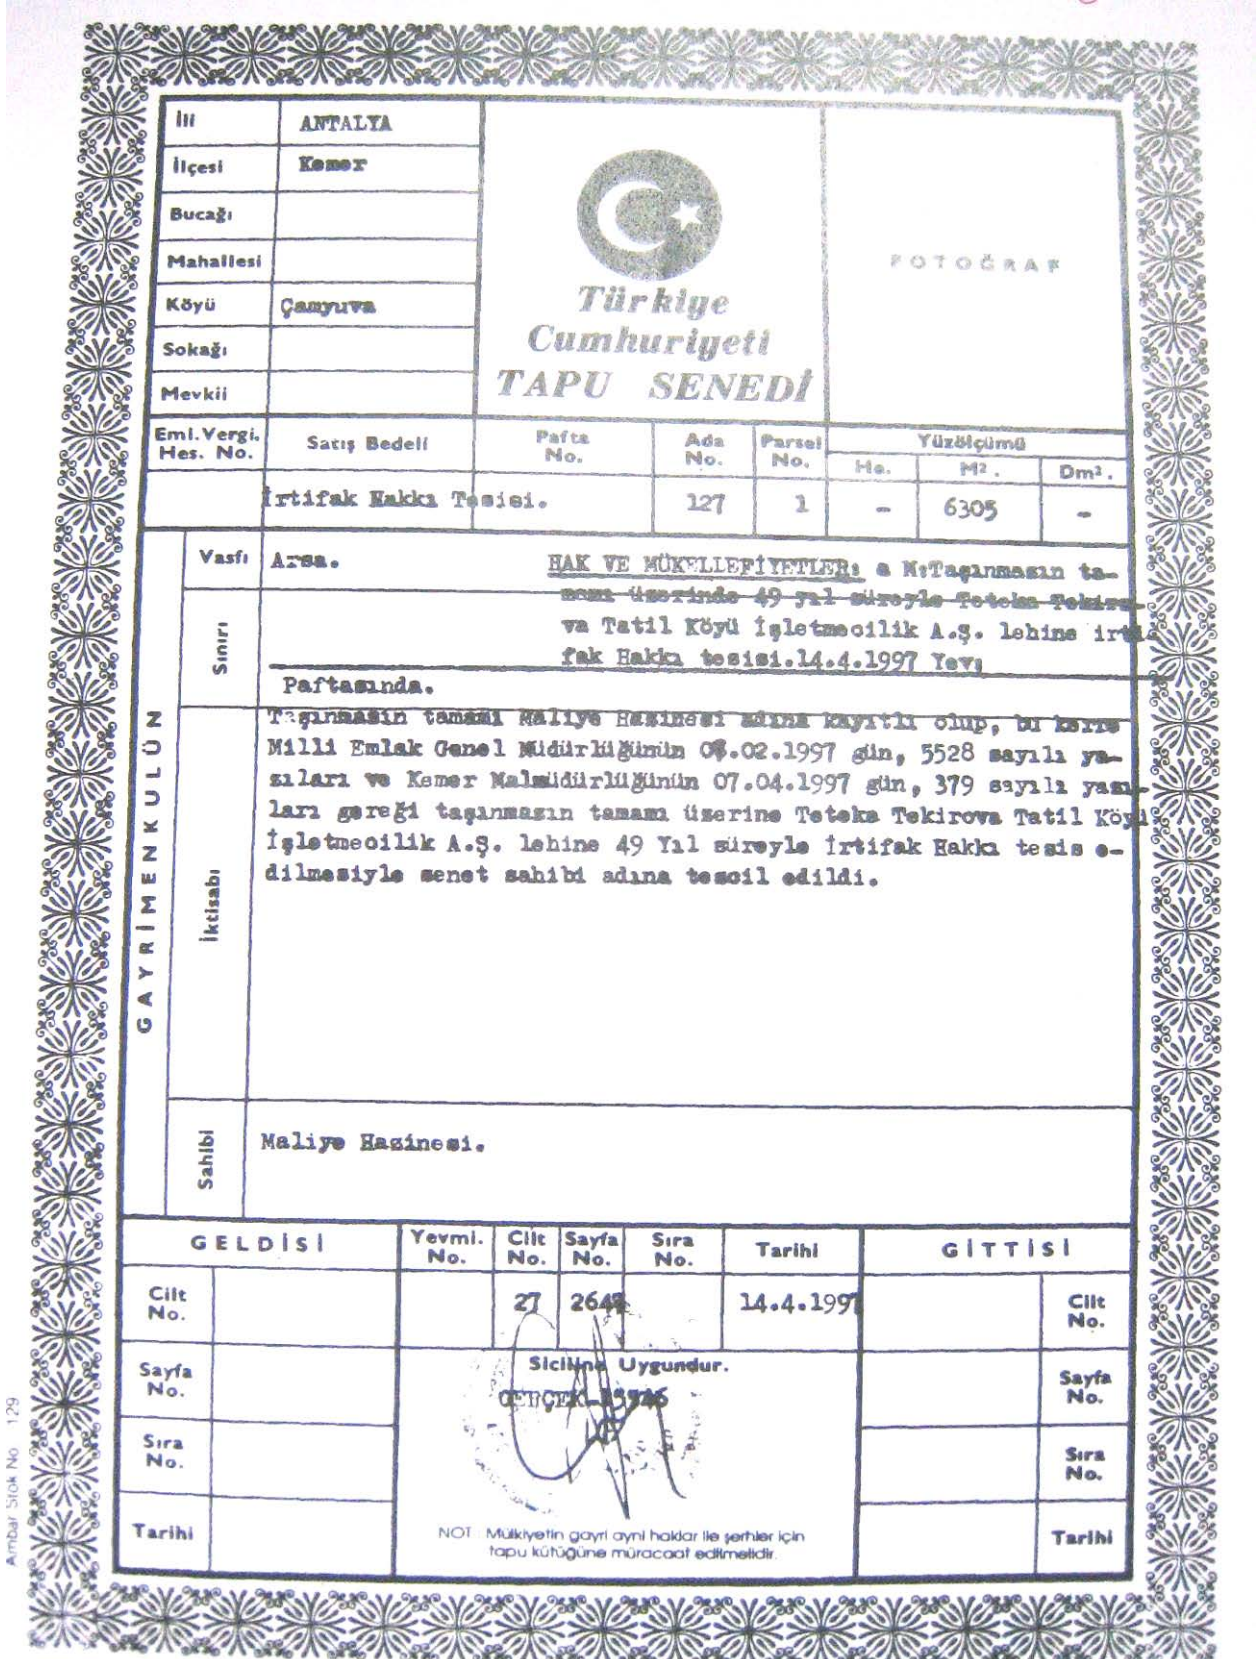 İli ANTALYA
İlçesi Kemer
Bucağı
Mahallesi
Köyü Çamyuva
Sokağı
Mevkii
Türkiye
Cumhuriyeti
TAPU SENEDİ
FOTOĞRAF
Eml.Vergi. Hes. No.
Satış Bedeli
Pafta No.
Ada No.
Parsel No.
Yüzölçümü
Ha. M². Dm².
İrtifak Hakkı Tesisi. 127 1 - 6305 -
GAYRİMENKULÜN
Vasfı Arsa.
HAK VE MÜKELLEFİYETLER: a N:Taşınmazın ta-
mamı üzerinde 49 yıl süreyle Teteka Tekiro-
va Tatil Köyü İşletmecilik A.Ş. lehine irti
fak Hakkı tesisi.14.4.1997 Yev:
Sınırı
Paftasında.
İktisabı
Taşınmazın tamamı Maliye Hazinesi adına kayıtlı olup, bu kerre
Milli Emlak Genel Müdürlüğünün .02.1997 gün, 5528 sayılı ya-
zıları ve Kemer Malmüdürlüğünün 07.04.1997 gün, 379 sayılı yazı-
ları gereği taşınmazın tamamı üzerine Teteka Tekirova Tatil Köyü
İşletmecilik A.Ş. lehine 49 Yıl süreyle İrtifak Hakkı tesis e-
dilmesiyle senet sahibi adına tescil edildi.
Sahibi
Maliye Hazinesi.
GELDİSİ
Yevmi. No.
Cilt No.
Sayfa No.
Sıra No.
Tarihi
GİTTİSİ
Cilt No.
27 14.4.1997
Cilt No.
Sayfa No.
Siciline Uygundur.
Sayfa No.
Sıra No.
Sıra No.
Tarihi
NOT : Mülkiyetin gayri ayni haklar ile şerhler için
tapu kütüğüne müracaat edilmelidir.
Tarihi
Ambar Stok No 129